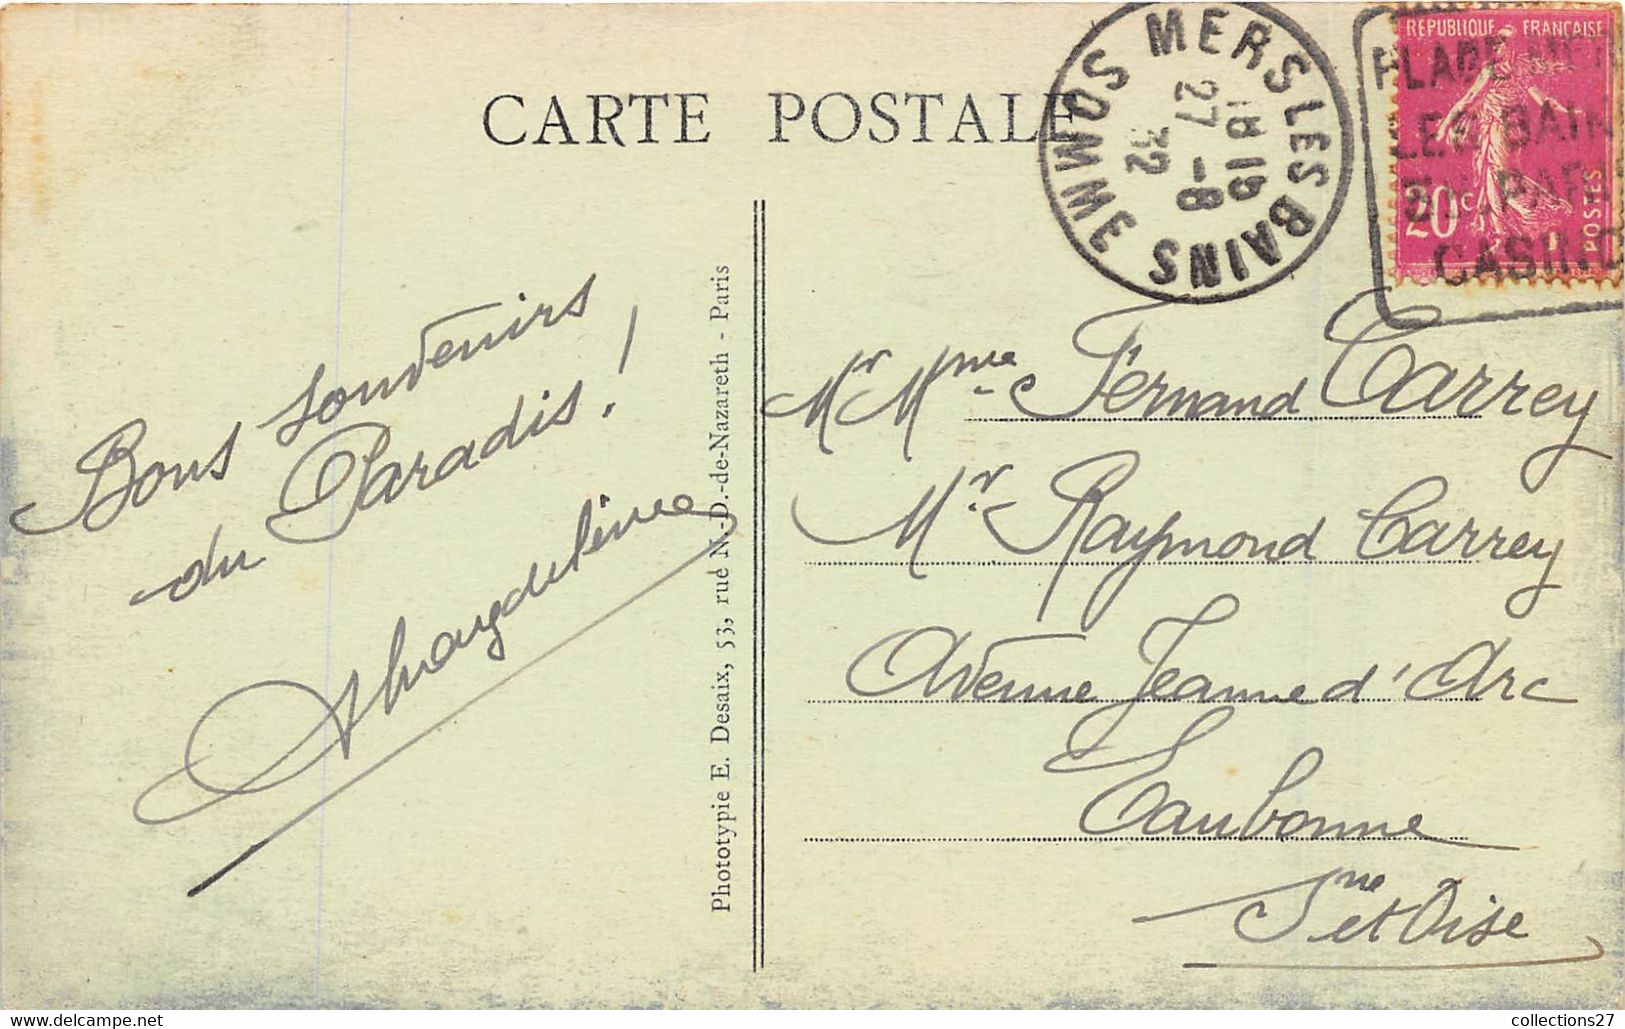 CARTE POSTALE
MERS LES BAINS
SOMME
18 15
27 -8
32
REPUBLIQUE FRANÇAISE
20c
POSTES
PLAGE
LES BAIN
CASINO
Bons souvenirs
du Paradis!
Phototypie E. Desaix, 53, rue N.-D.-de-Nazareth - Paris
Mr Mme Fernand Carrey
Mr Raymond Carrey
Avenue Jeanne d'Arc
Eaubonne
Sne et Oise
collections27